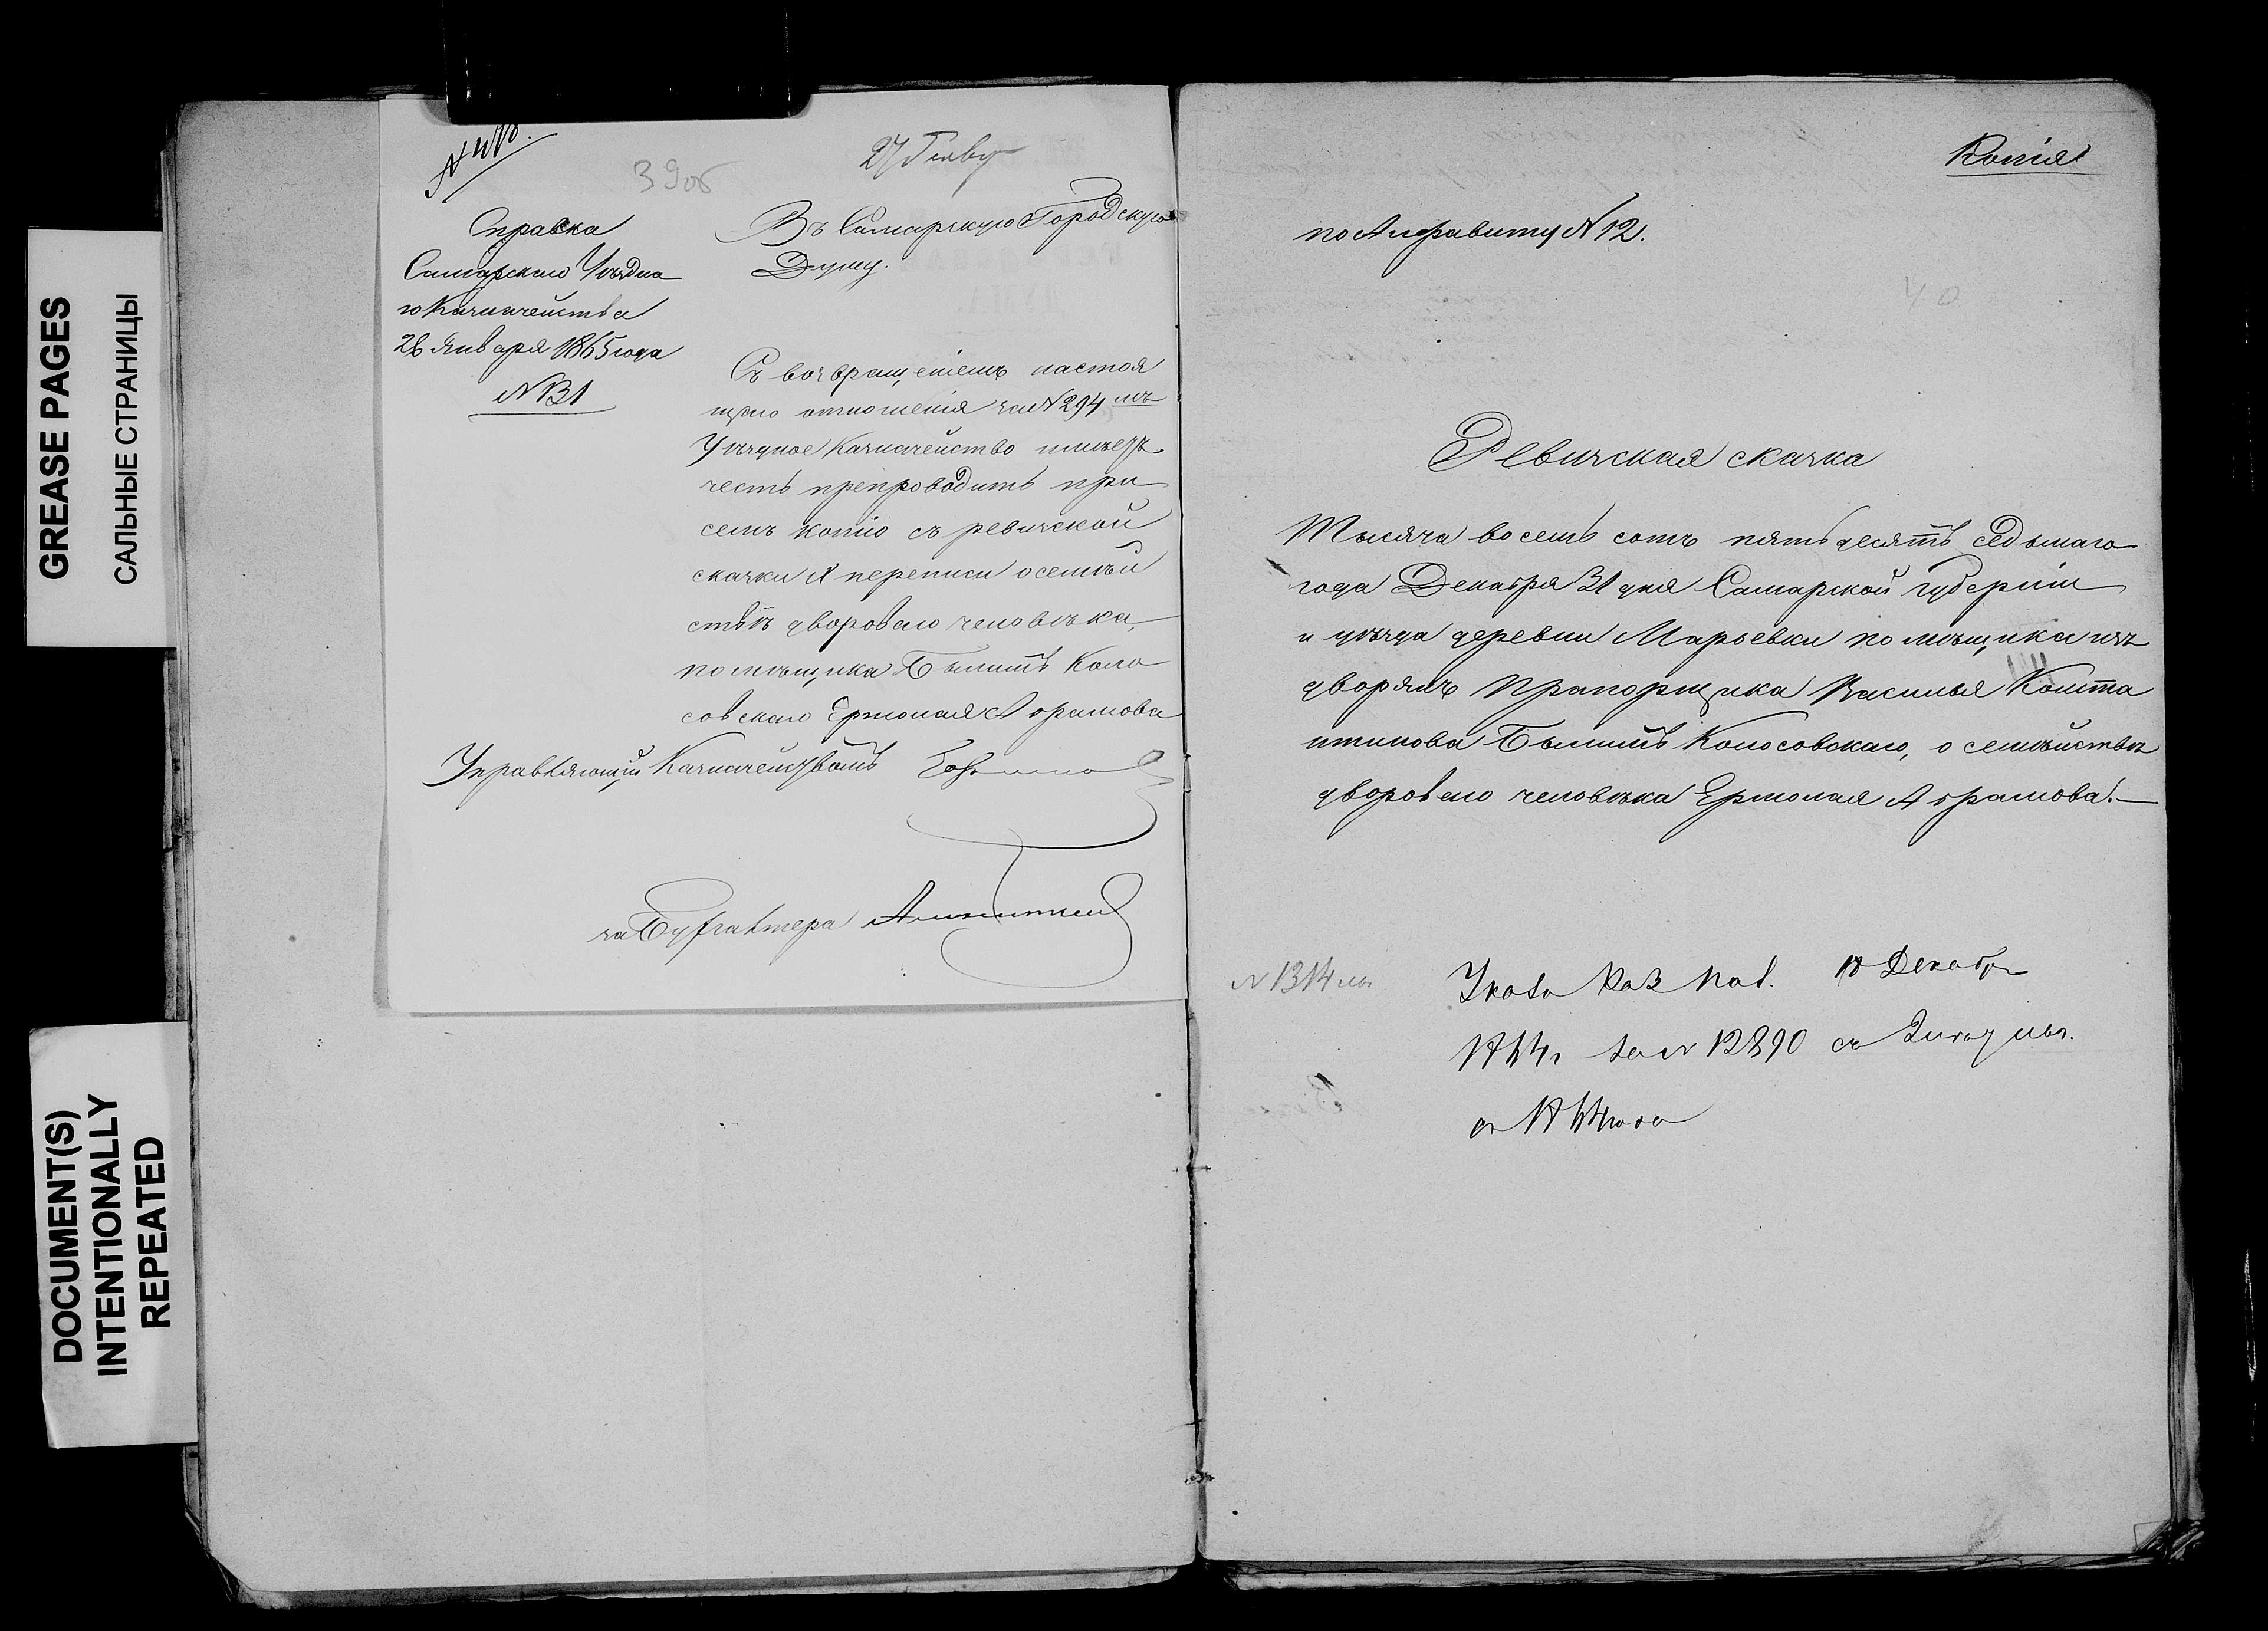 GREASE PAGES
САЛЬНЫЕ СТРАНИЦЫ
DOCUMENT(S)
INTENTIONALLY
REPEATED
39об
27 Генвр
Справка
Самарскаго Уѣздна
го Казначейства
26 Января 1865 года
№ 31
Въ Самарскую Городскую
Думу.
Съ возвращеніемъ настоя
щаго отношенія за № 294 мъ
Уѣздное Казначейство имѣетъ
честь препроводить при
семъ копію съ ревизской
сказки X переписи о семѣй
ствѣ двороваго человѣка,
помѣщика Колo
совскаго Ермолая Абрамова
Управляющій Казначействомъ
за Бухгалтера
Копія
по Алфавиту № 12.
40
Ревизская сказка
Тысяча восемь сотъ пятьдесятъ седьмаго
года Декабря 31 дня Самарской губерніи
и уѣзда деревни Марьевки помѣщика изъ
дворянъ Прапорщика Василья Конста
нтинова Колосовскаго, о семѣйствѣ
двороваго человѣка Ермолая Абрамова.
Декабр
за № 12890 съ